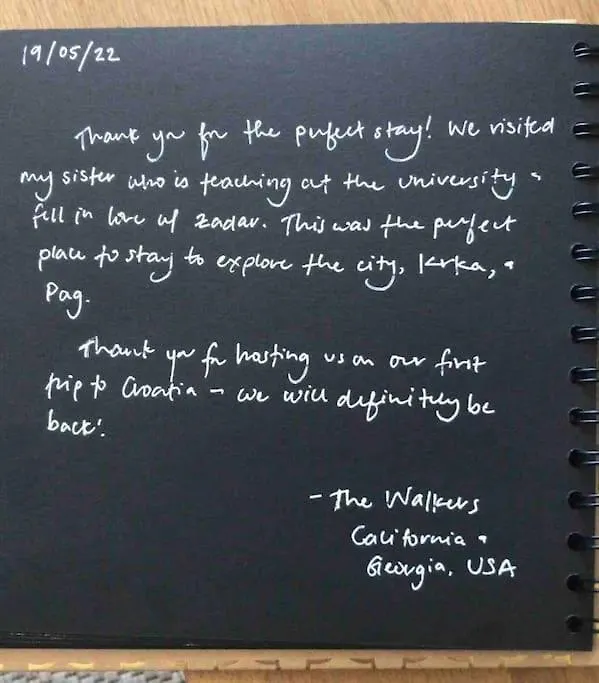 19/05/22
Thank you for the perfect stay! We visited
my sister who is teaching at the university +
fell in love w/ Zadar. This was the perfect
place to stay to explore the city, Krka, +
Pag.
Thank you for hosting us on our first
trip to Croatia – we will definitely be
back!
– The Walkers
California +
Georgia, USA